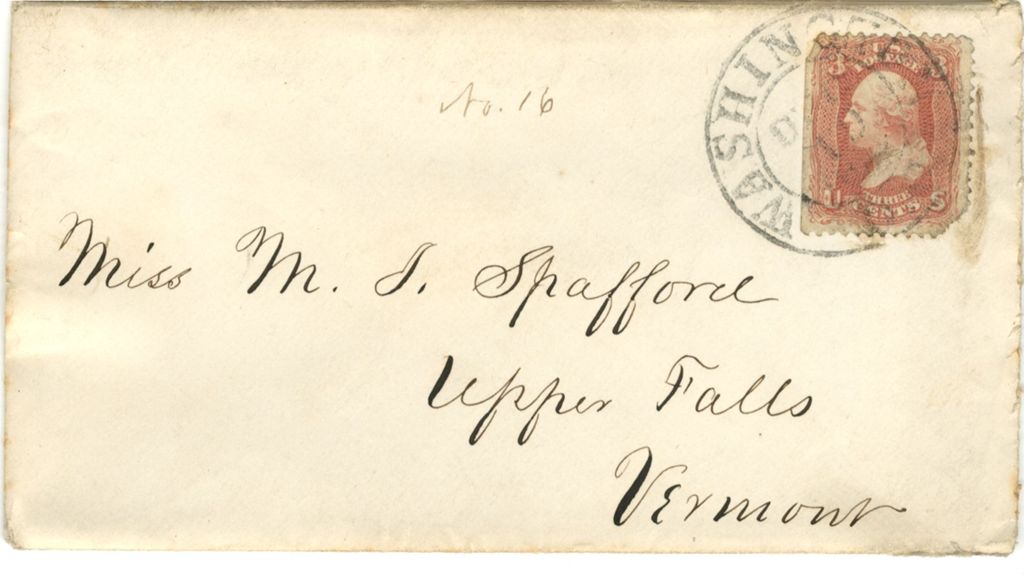 No. 16
WASHINGTON
3 U.S. 3
U THREE S
CENTS
Miss M. J. Spafford
Upper Falls
Vermont